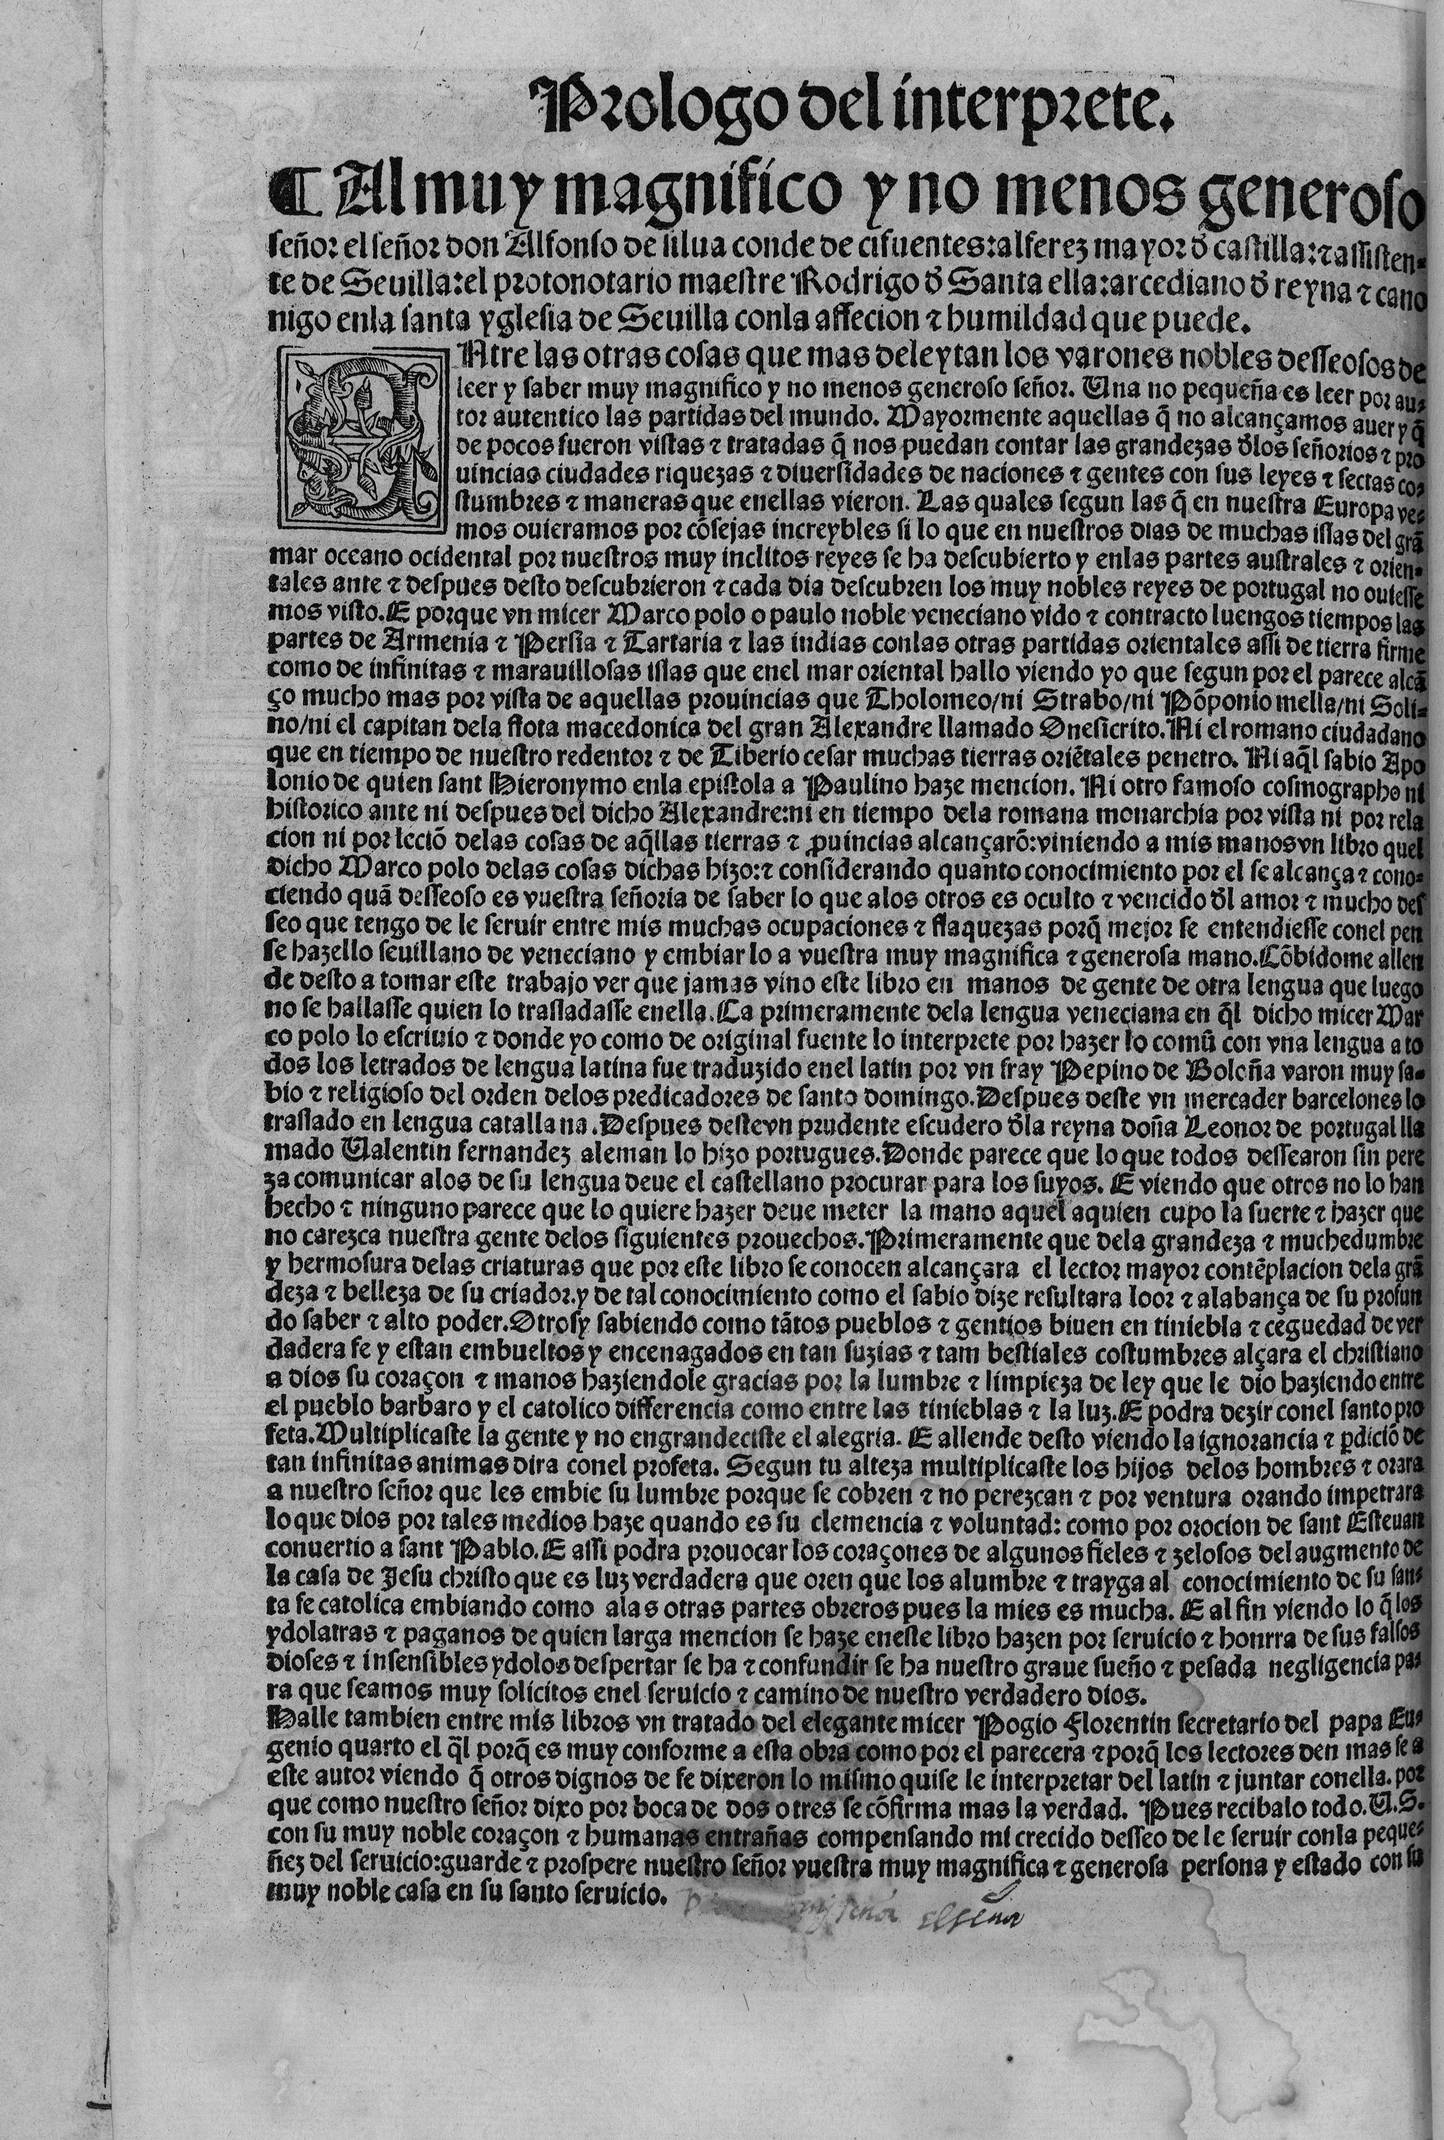 Prologo del interprete.
¶ Al muy magnifico y no menos generoso
señor el señor don Alfonso de silua conde de cifuentes: alferez mayor đ castilla: ⁊ assisten-
te de Seuilla: el protonotario maestre Rodrigo đ Santa ella: arcediano đ reyna ⁊ cano
nigo enla santa yglesia de Seuilla conla affecion ⁊ humildad que puede.
ENtre las otras cosas que mas deleytan los varones nobles desseosos de
leer y saber muy magnifico y no menos generoso señor. Una no pequeña es leer por au-
tor autentico las partidas del mundo. Mayormente aquellas q̃ no alcançamos auer y q̃
de pocos fueron vistas ⁊ tratadas q̃ nos puedan contar las grandezas đlos señorios ⁊ pro
uincias ciudades riquezas ⁊ diuersidades de naciones ⁊ gentes con sus leyes ⁊ sectas co-
stumbres ⁊ maneras que enellas vieron. Las quales segun las q̃ en nuestra Europa ve-
mos ouieramos por cõsejas increybles si lo que en nuestros dias de muchas islas del grã
mar occeano ocidental por nuestros muy inclitos reyes se ha descubierto y enlas partes australes ⁊ orien-
tales ante ⁊ despues desto descubrieron ⁊ cada dia descubren los muy nobles reyes de portugal no ouiesse
mos visto. E porque vn micer Marco polo o paulo noble veneciano vido ⁊ contracto luengos tiempos las
partes de Armenia ⁊ Persia ⁊ Tartaria ⁊ las indias conlas otras partidas orientales assi de tierra firme
como de infinitas ⁊ marauillosas islas que enel mar oriental hallo viendo yo que segun por el parece alcã
ço mucho mas por vista de aquellas prouincias que Tholomeo/ni Strabo/ni Põponio mella/ni Soli-
no/ni el capitan dela flota macedonica del gran Alexandre llamado Onesicrito. Ni el romano ciudadano
que en tiempo de nuestro redentor ⁊ de Tiberio cesar muchas tierras oriẽtales penetro. Ni aq̃l sabio Apo
lonio de quien sant Hieronymo enla epistola a Paulino haze mencion. Ni otro famoso cosmographo ni
historico ante ni despues del dicho Alexandre: ni en tiempo dela romana monarchia por vista ni por rela
cion ni por leciõ delas cosas de aq̃llas tierras ⁊ ꝓuincias alcançarõ: viniendo a mis manos vn libro quel
dicho Marco polo delas cosas dichas hizo: ⁊ considerando quanto conocimiento por el se alcança ⁊ cono-
ciendo quã desseoso es vuestra señoria de saber lo que alos otros es oculto ⁊ vencido đl amor ⁊ mucho des
seo que tengo de le seruir entre mis muchas ocupaciones ⁊ flaquezas porq̃ mejor se entendiesse conel pen
se hazello seuillano de veneciano y embiar lo a vuestra muy magnifica ⁊ generosa mano. Cõbidome allen
de desto a tomar este trabajo ver que jamas vino este libro en manos de gente de otra lengua que luego
no se hallasse quien lo trasladasse enella. Ca primeramente dela lengua veneciana en q̃l dicho micer Mar
co polo lo escriuio ⁊ donde yo como de original fuente lo interprete por hazer lo comũ con vna lengua a to
dos los letrados de lengua latina fue traduzido enel latin por vn fray Pepino de Boloña varon muy sa-
bio ⁊ religioso del orden delos predicadores de santo domingo. Despues deste vn mercader barcelones lo
traslado en lengua catallana. Despues deste vn prudente escudero đla reyna doña Leonor de portugal lla
mado Ualentin fernandez aleman lo hizo portugues. Donde parece que lo que todos dessearon sin pere
za comunicar alos de su lengua deue el castellano procurar para los suyos. E viendo que otros no lo han
hecho ⁊ ninguno parece que lo quiere hazer deue meter la mano aquel aquien cupo la suerte ⁊ hazer que
no carezca nuestra gente delos siguientes prouechos. Primeramente que dela grandeza ⁊ muchedumbre
y hermosura delas criaturas que por este libro se conocen alcançara el lector mayor contẽplacion dela grã
deza ⁊ belleza de su criador. y de tal conocimiento como el sabio dize resultara loor ⁊ alabança de su profun
do saber ⁊ alto poder. Otrosy sabiendo como tãtos pueblos ⁊ gentios biuen en tiniebla ⁊ ceguedad de ver
dadera fe y estan embueltos y encenagados en tan suzias ⁊ tam bestiales costumbres alçara el christiano
a dios su coraçon ⁊ manos haziendole gracias por la lumbre ⁊ limpieza de ley que le dio haziendo entre
el pueblo barbaro y el catolico differencia como entre las tinieblas ⁊ la luz. E podra dezir conel santo pro
feta. Multiplicaste la gente y no engrandeciste el alegria. E allende desto viendo la ignorancia ⁊ ꝑdiciõ de
tan infinitas animas dira conel profeta. Segun tu alteza multiplicaste los hijos delos hombres ⁊ orara
a nuestro señor que les embie su lumbre porque se cobren ⁊ no perezcan ⁊ por ventura orando impetrara
lo que dios por tales medios haze quando es su clemencia ⁊ voluntad: como por orocion de sant Esteuan
conuertio a sant Pablo. E assi podra prouocar los coraçones de algunos fieles ⁊ zelosos del augmento de
la casa de Jesu christo que es luz verdadera que oren que los alumbre ⁊ trayga al conocimiento de su san-
ta fe catolica embiando como alas otras partes obreros pues la mies es mucha. E al fin viendo lo q̃ los
ydolatras ⁊ paganos de quien larga mencion se haze eneste libro hazen por seruicio ⁊ honrra de sus falsos
dioses ⁊ insensibles ydolos despertar se ha ⁊ confundir se ha nuestro graue sueño ⁊ pesada negligencia pa-
ra que seamos muy solicitos enel seruicio ⁊ camino de nuestro verdadero dios.
Halle tambien entre mis libros vn tratado del elegante micer Pogio Florentin secretario del papa Eu-
genio quarto el q̃l porq̃ es muy conforme a esta obra como por el parecera ⁊ porq̃ los lectores den mas fe a
este autor viendo q̃ otros dignos de fe dixeron lo mismo quise le interpretar del latin ⁊ juntar conella. por
que como nuestro señor dixo por boca de dos o tres se cõfirma mas la verdad. Pues recibalo todo. U. S.
con su muy noble coraçon ⁊ humanas entrañas compensando mi crecido desseo de le seruir conla peque-
ñez del seruicio: guarde ⁊ prospere nuestro señor vuestra muy magnifica ⁊ generosa persona y estado con su
muy noble casa en su santo seruicio.